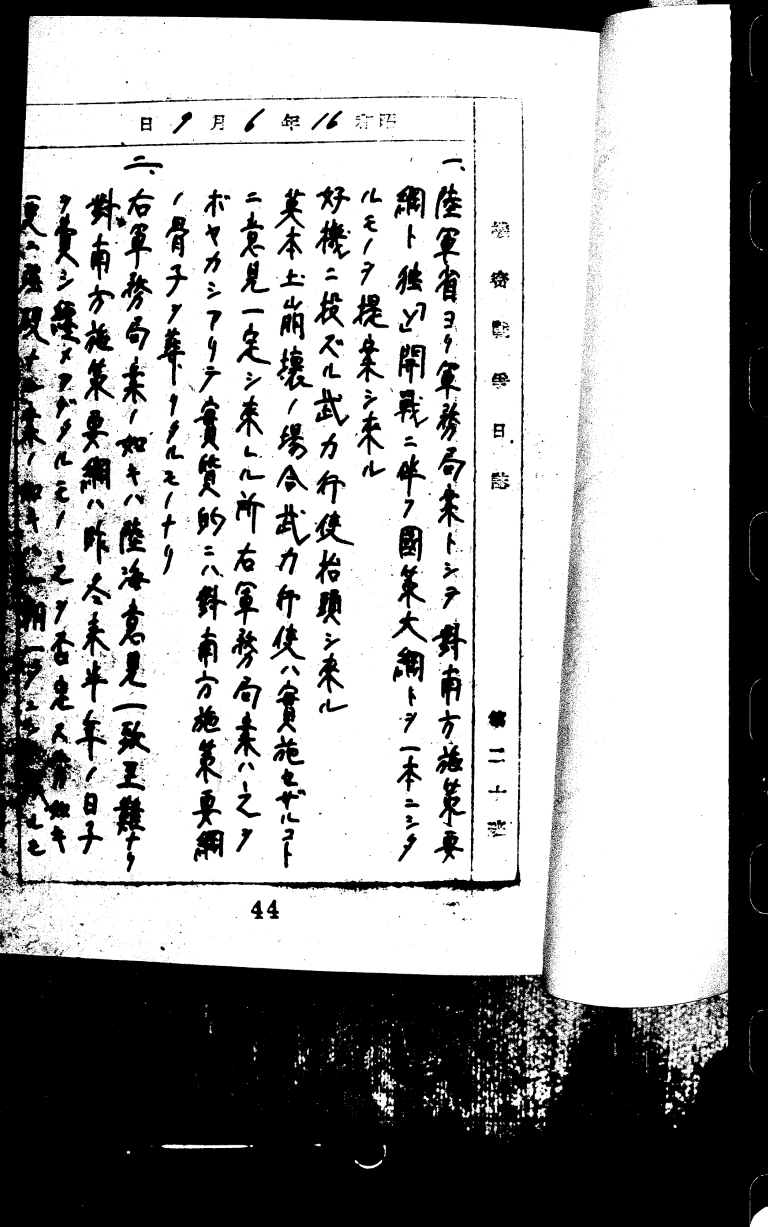 機密戰爭日誌 第二十班
昭和16年6月9日
一、陸軍省ヨリ軍務局案トシテ對南方施策要
綱ト独「ソ」開戰ニ伴フ國策大綱トヲ一本ニシタ
ルモノヲ提案シ来ル
好機ニ投ズル武力行使抬頭シ来ル
英本土崩壞ノ場合武力行使ハ實施セザルコト
ニ意見一定シ来レル所右軍務局案ハ之ヲ
ボヤカシアリテ實質的ニハ對南方施策要綱
ノ骨子ヲ葬リタルモノナリ
二、右軍務局案ノ如キハ陸海意見一致至難ナリ
對南方施策要綱ハ昨冬来半年ノ日子
ヲ費シ經メアゲタルモノ之ヲ否定ス 如キ
更ニ强硬ナル案ノ如キハ
44